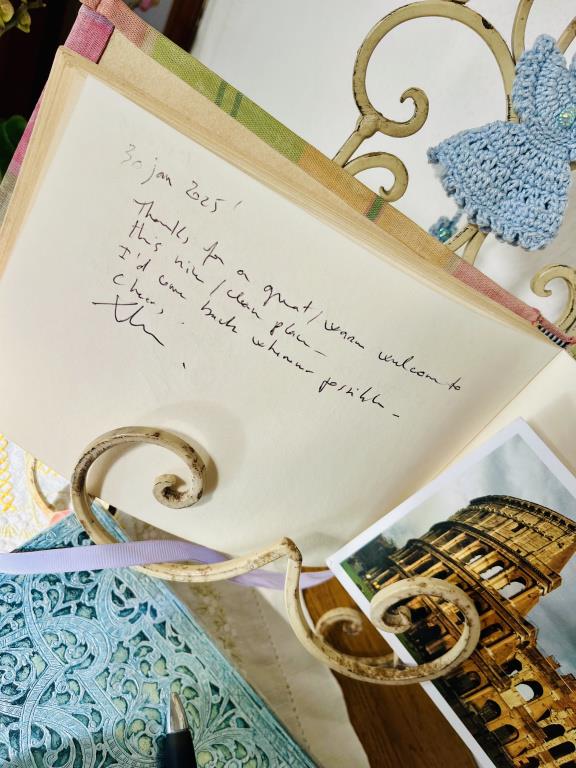 30 jan 2025!
Thanks for a great/warm welcome to
this nice/clean place
I'd come back whenever possible
Cheers,